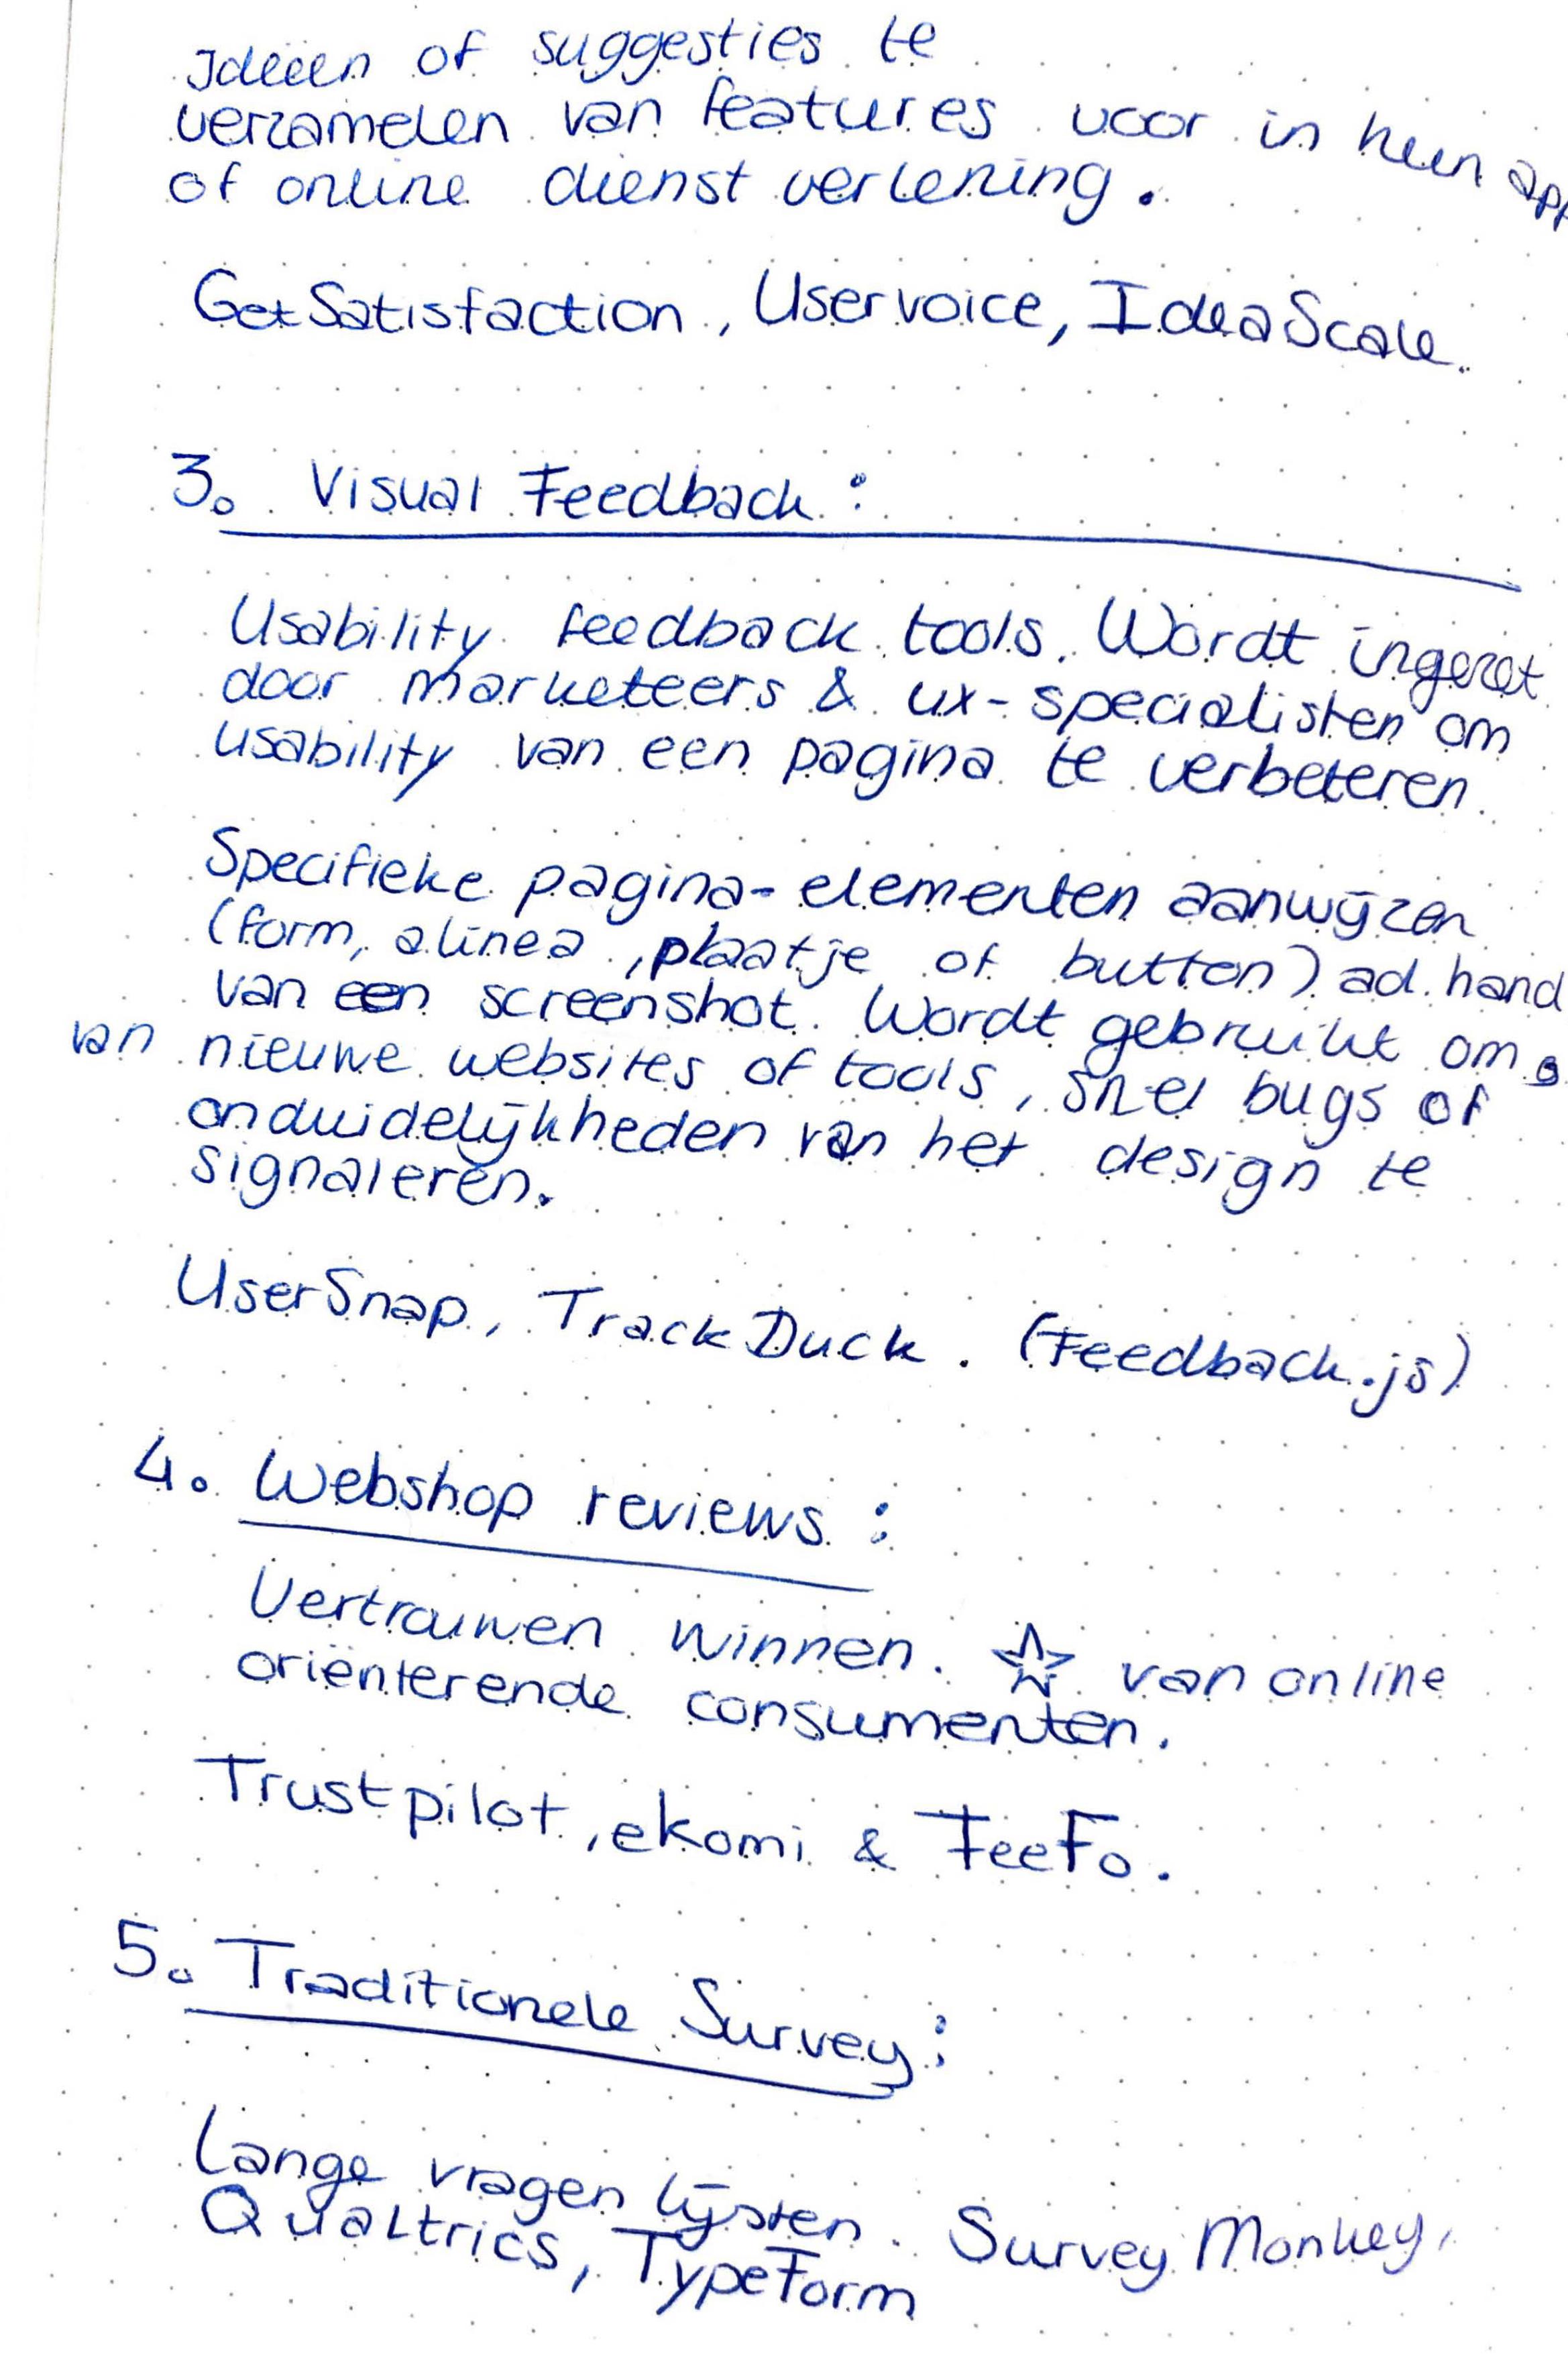 Ideeën of suggesties te
verzamelen van features voor in hun app
of online dienst verlening.
GetSatisfaction, Uservoice, IdeaScale.
3. Visual Feedback:
Usability feedback tools. Wordt ingezet
door marketeers & ux-specialisten om
usability van een pagina te verbeteren.
Specifieke pagina-elementen aanwijzen
(form, alinea, plaatje of button) ad. hand
van een screenshot. Wordt gebruikt om
van nieuwe websites of tools, snel bugs of
onduidelijkheden van het design te
signaleren.
UserSnap, TrackDuck. (Feedback.js)
4. Webshop reviews:
Vertrouwen winnen. ☆ van online
oriënterende consumenten.
Trustpilot, ekomi & FeeFo.
5. Traditionele Survey:
Lange vragen lijsten. Survey Monkey,
Qualtrics, TypeForm